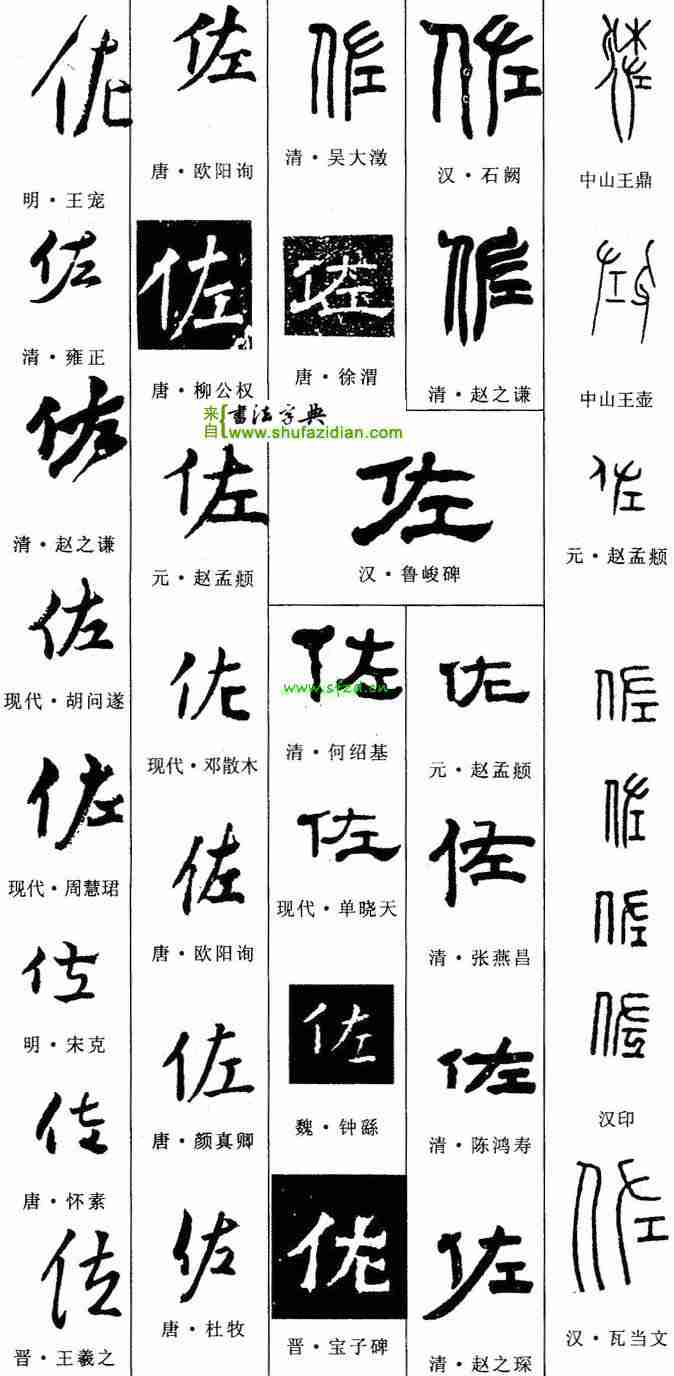 佐
明·王宠
佐
清·雍正
佐
清·赵之谦
佐
现代·胡问遂
佐
现代·周慧珺
佐
明·宋克
佐
唐·怀素
佐
晋·王羲之
佐
唐·欧阳询
佐
唐·柳公权
来自{书法字典
www.shufazidian.com
佐
元·赵孟頫
佐
现代·邓散木
佐
唐·欧阳询
佐
唐·颜真卿
佐
唐·杜牧
佐
清·吴大澂
佐
唐·徐渭
佐
汉·鲁峻碑
佐
www.sfzd.cn
清·何绍基
佐
现代·单晓天
佐
魏·钟繇
佐
晋·宝子碑
佐
汉·石阙
佐
清·赵之谦
佐
元·赵孟頫
佐
清·张燕昌
佐
清·陈鸿寿
佐
清·赵之琛
中山王鼎
中山王壶
佐
元·赵孟頫
佐
佐
佐
佐
汉印
佐
汉·瓦当文